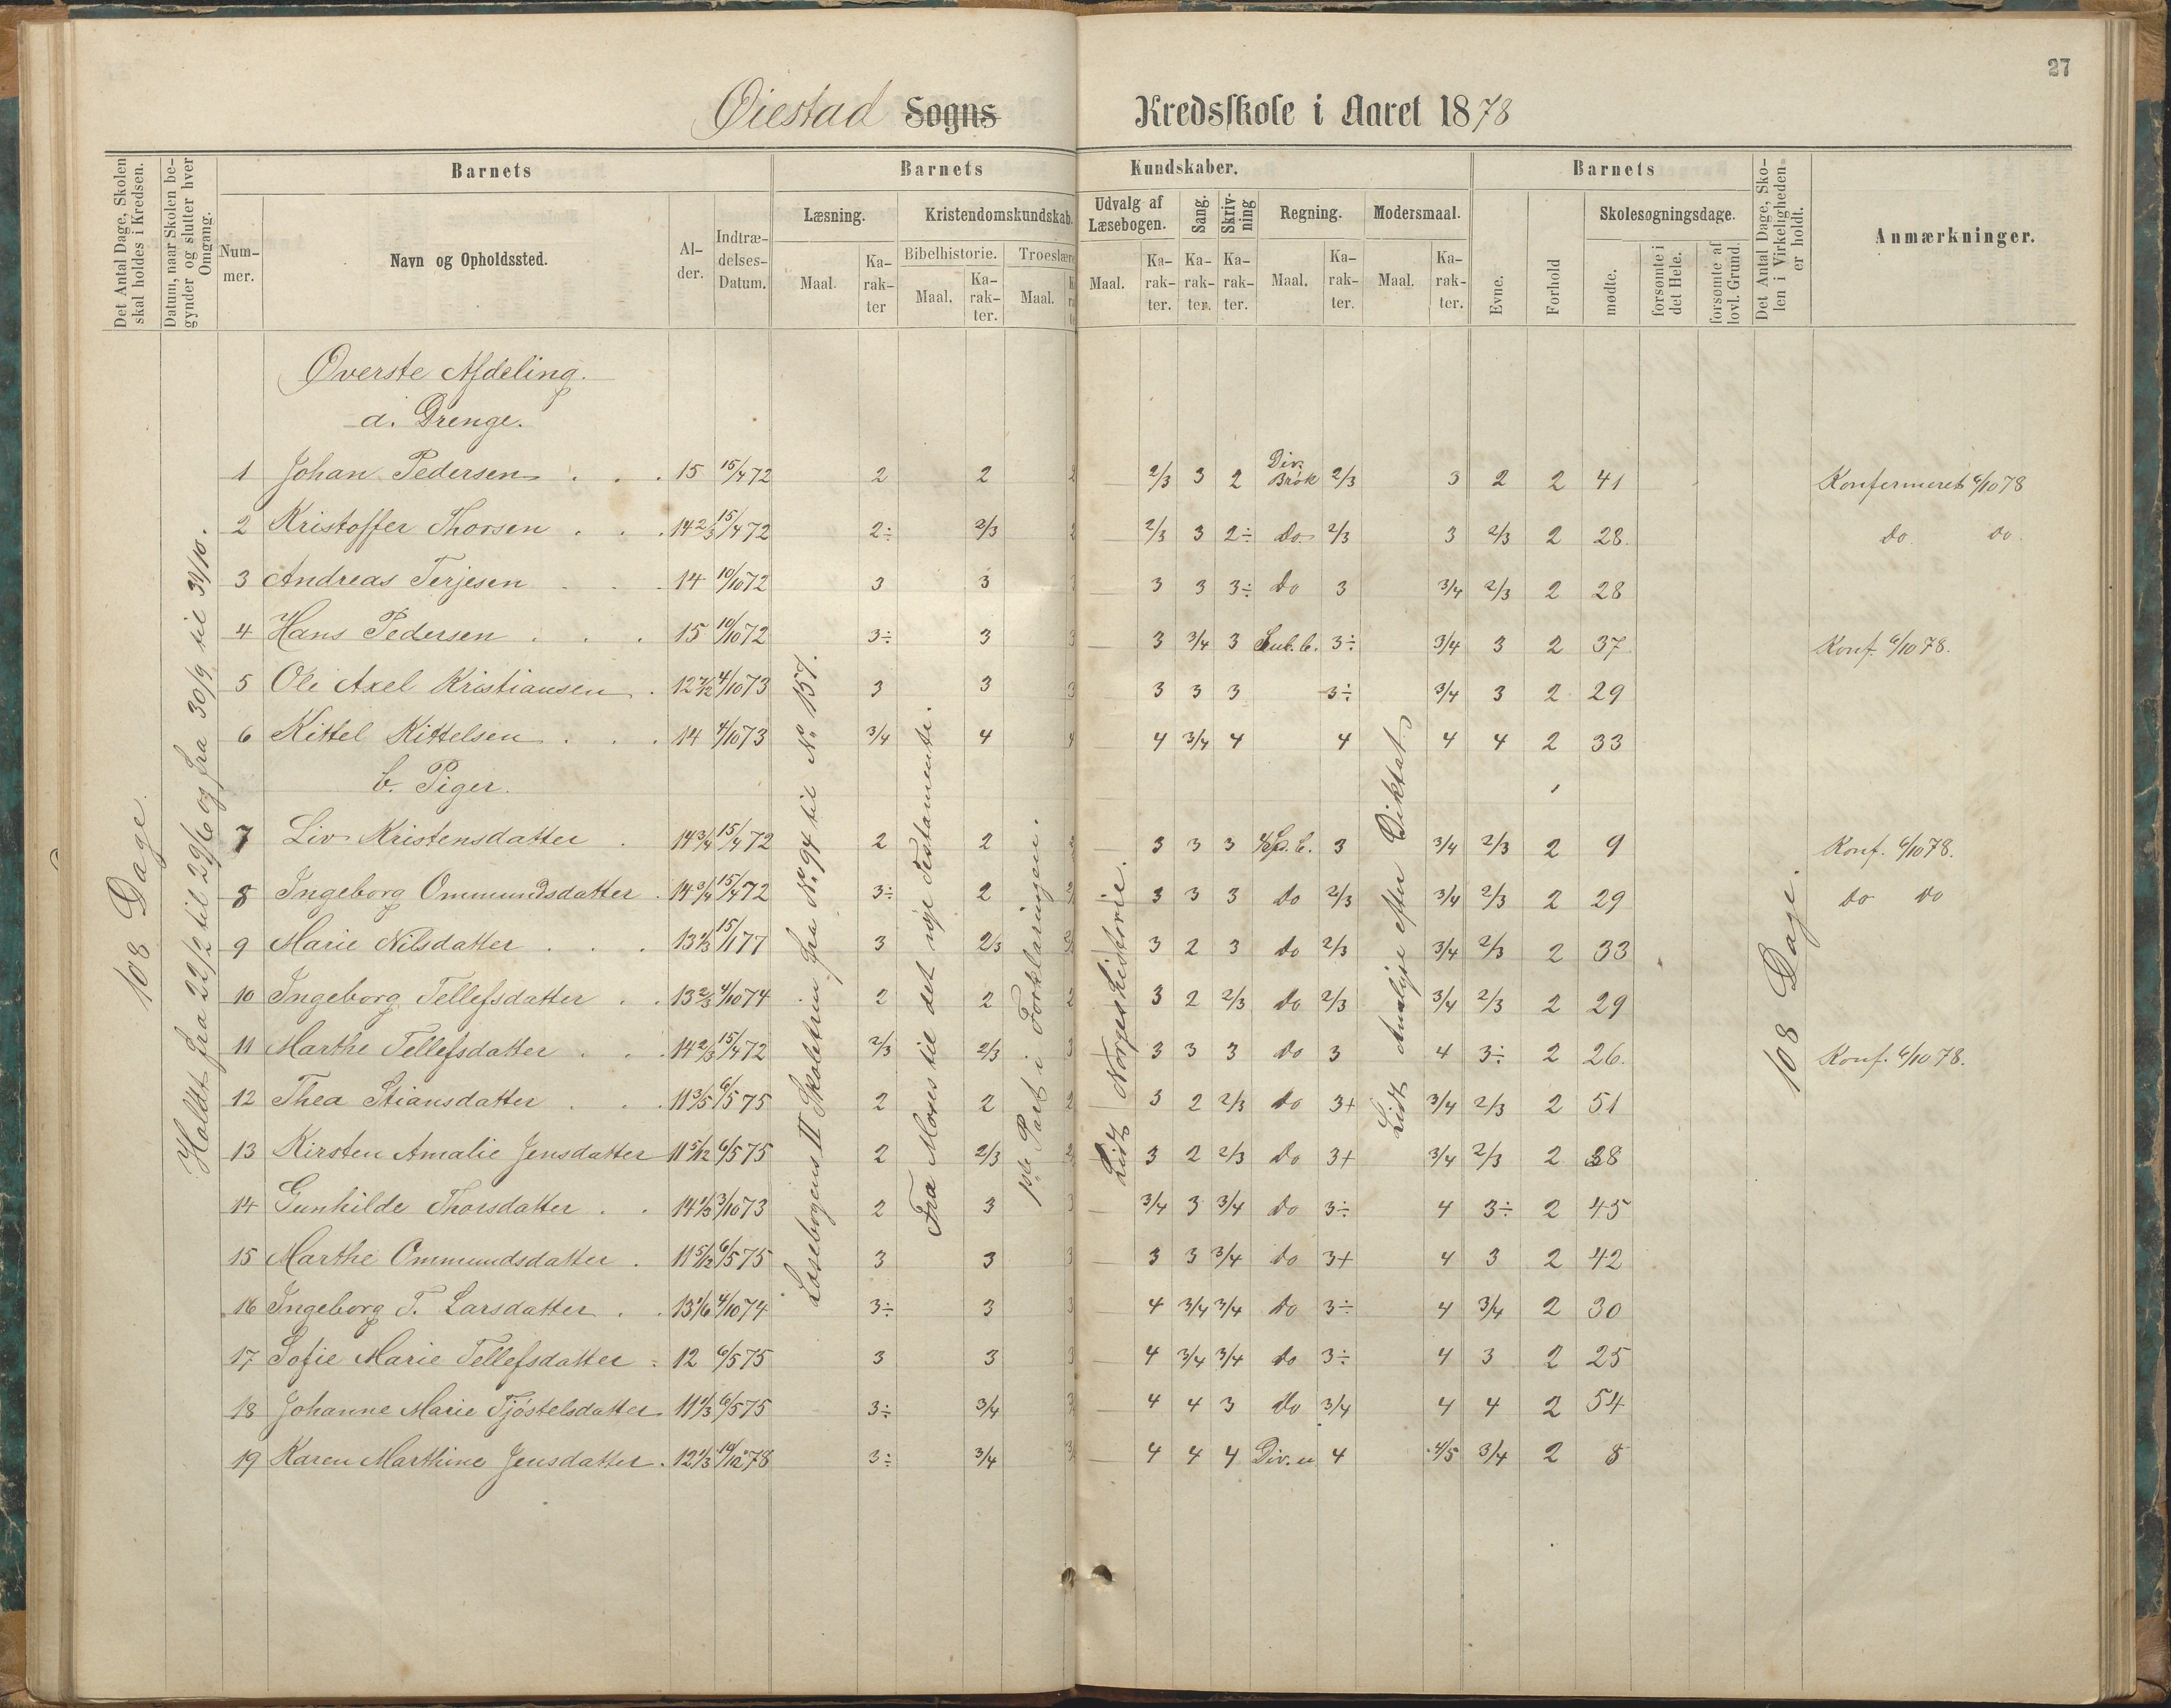 27
Øiestad Sogns Kredsskole i Aaret 1878
Det Antal Dage, Skolen skal holdes i Kredsen.
Datum, naar Skolen begynder og slutter hver Omgang.
Barnets
Nummer.
Navn og Opholdssted.
Alder.
Indtrædelses-Datum.
Barnets Kundskaber.
Læsning.
Maal. Karakter
Kristendomskundskab.
Bibelhistorie.
Maal. Karakter.
Troeslære
Maal.
Udvalg af Læsebogen.
Maal. Karakter.
Sang. Karakter.
Skrivning Karakter.
Regning.
Maal. Karakter.
Modersmaal.
Maal. Karakter.
Barnets
Evne.
Forhold
Skolesøgningsdage.
mødte.
forsømte i det Hele.
forsømte af lovl. Grund.
Det Antal Dage, Skolen i Virkeligheden er holdt.
Anmærkninger.
108 Dage.
Holdt fra 22/2 til 29/6 og fra 30/9 til 31/10.
Læsebogens II Skoletrin fra No. 94 til No. 157.
Fra Moses til det nye Testamente.
Part i Forklaringen.
Lidt Norgeshistorie.
Lidt Analyse efter Diktat
108 Dage.
Øverste Afdeling.
a. Drenge.
1 Johan Pedersen 15 15/4 72 2 2 2 2/3 3 2 Div. Brøk 2/3 3 2 2 41 Konfirmeret 6/10 78
2 Kristoffer Thorsen 14 2/3 15/4 72 2÷ 2/3 2 2/3 3 2÷ do 2/3 3 2/3 2 28 do do
3 Andreas Terjesen 14 10/10 72 3 3 3 3 3 3÷ do 3 3/4 2/3 2 28
4 Hans Pedersen 15 10/10 72 3÷ 3 3 3 3/4 3 Sub. b. 3÷ 3/4 3 2 37 Konf. 6/10 78.
5 Ole Axel Kristiansen 12 7/12 4/10 73 3 3 3 3 3 3 3÷ 3/4 3 2 29
6 Kittel Kittelsen 14 4/10 73 3/4 4 4 4 3/4 4 4 4 4 2 33
b. Piger.
7 Liv Kristensdatter 14 3/4 15/4 72 2 2 2 3 3 3 3 3/4 2/3 2 9 Konf. 6/10 78.
8 Ingeborg Ommundsdatter 14 3/4 15/4 72 3÷ 2 2 3 3 3 do 2/3 3/4 2/3 2 29 do do
9 Marie Nilsdatter 13 1/3 15/1 77 3 2/3 3 2 3 do 2/3 3/4 2/3 2 33
10 Ingeborg Tellefsdatter 13 2/3 4/10 74 2 2 2 3 2 2/3 do 2/3 3/4 2/3 2 29
11 Marthe Tellefsdatter 14 2/3 15/4 72 2/3 2/3 3 3 3 3 do 3 4 3÷ 2 26. Konf. 6/10 78.
12 Thea Stiansdatter 11 3/5 6/5 75 2 2 2 3 2 2/3 do 3+ 3/4 2/3 2 51
13 Kirsten Amalie Jensdatter 11 5/12 6/5 75 2 2/3 2 3 2 2/3 do 3+ 3/4 2/3 2 38
14 Gunhilde Thorsdatter 14 1/3 3/10 73 2 3 3 3/4 3 3/4 do 3÷ 4 3÷ 2 45
15 Marthe Ommundsdatter 11 5/12 6/5 75 3 3 3 3 3 3/4 do 3+ 4 3 2 42
16 Ingeborg T. Larsdatter 13 1/6 4/10 74 3÷ 3 3 4 3/4 3/4 do 3÷ 4 3/4 2 30
17 Sofie Marie Tellefsdatter 12 6/5 75 3 3 3 4 3/4 3/4 do 3÷ 4 3 2 25
18 Johanne Marie Tjøstelsdatter 11 1/3 6/5 75 3÷ 3/4 4 4 3 do 3/4 4 4 2 54
19 Karen Marthine Jensdatter 12 1/3 14/10 78 3÷ 3/4 4 4 4 Div. u 4 4/5 3/4 2 8